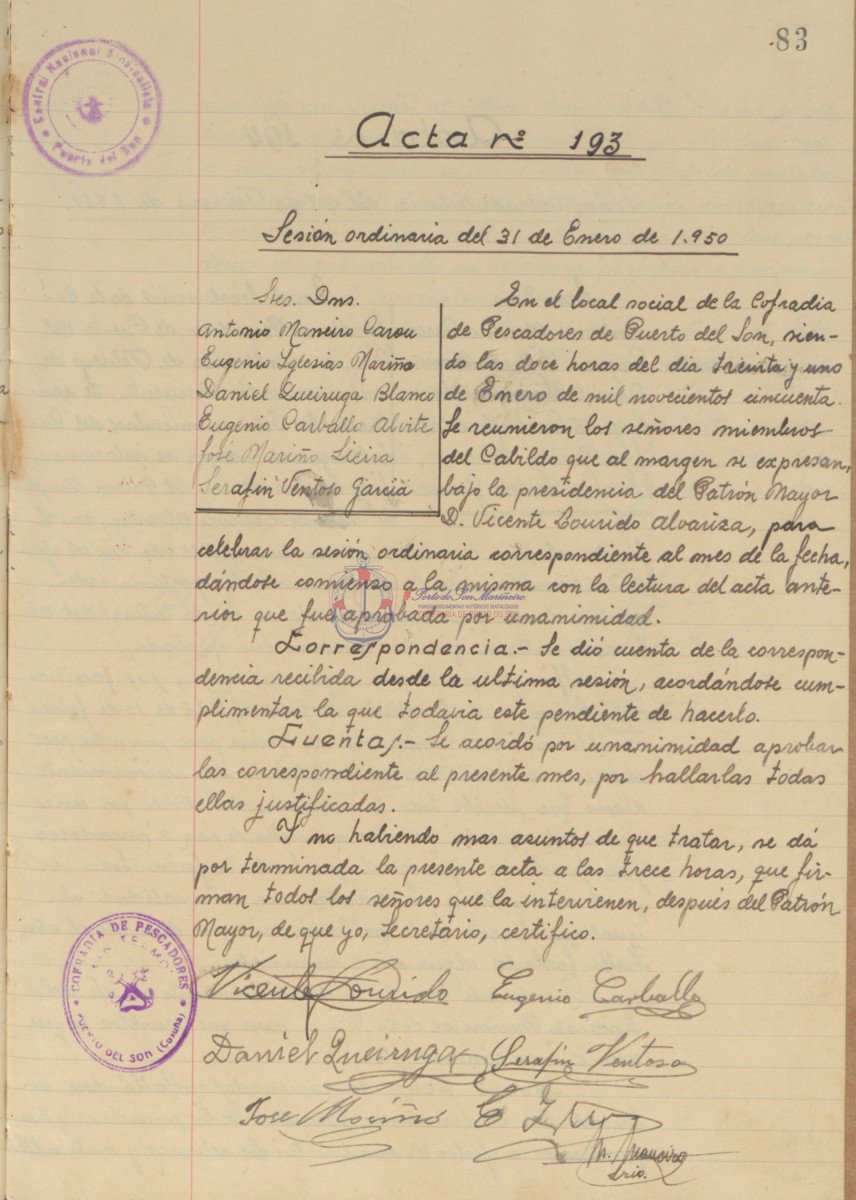 83
Central Nacional Sindicalista
Puerto del Son
Acta nº 193
Sesión ordinaria del 31 de Enero de 1.950
Sres. Dns.
Antonio Maneiro Carou
Eugenio Iglesias Mariño
Daniel Queiruga Blanco
Eugenio Carballo Alvite
José Mariño Lieira
Serafín Ventoso García
En el local social de la Cofradia
de Pescadores de Puerto del Son, sien-
do las doce horas del dia treinta y uno
de Enero de mil novecientos cincuenta.
Se reunieron los señores miembros
del Cabildo que al margen se expresan,
bajo la presidencia del Patrón Mayor
D. Vicente Lourido Alvariza, para
celebrar la sesión ordinaria correspondiente al mes de la fecha,
dándose comienzo a la misma con la lectura del acta ante-
rior que fué aprobada por unanimidad.
Porto do Son Mariñeiro
Correspondencia.- Se dió cuenta de la correspon-
dencia recibida desde la ultima sesión, acordándose cum-
plimentar la que todavia este pendiente de hacerlo.
Cuentas.- Se acordó por unanimidad aprobar
las correspondiente al presente mes, por hallarlas todas
ellas justificadas.
Y no habiendo mas asuntos de que tratar, se dá
por terminada la presente acta a las trece horas, que fir-
man todos los señores que la intervienen, después del Patrón
Mayor, de que yo, Secretario, certifico.
COFRADIA DE PESCADORES
SAN TELMO
PUERTO DEL SON (Coruña)
Vicente Lourido Eugenio Carballo
Daniel Queiruga Serafin Ventoso
Jose Mariño
M. Maneiro
Srio.